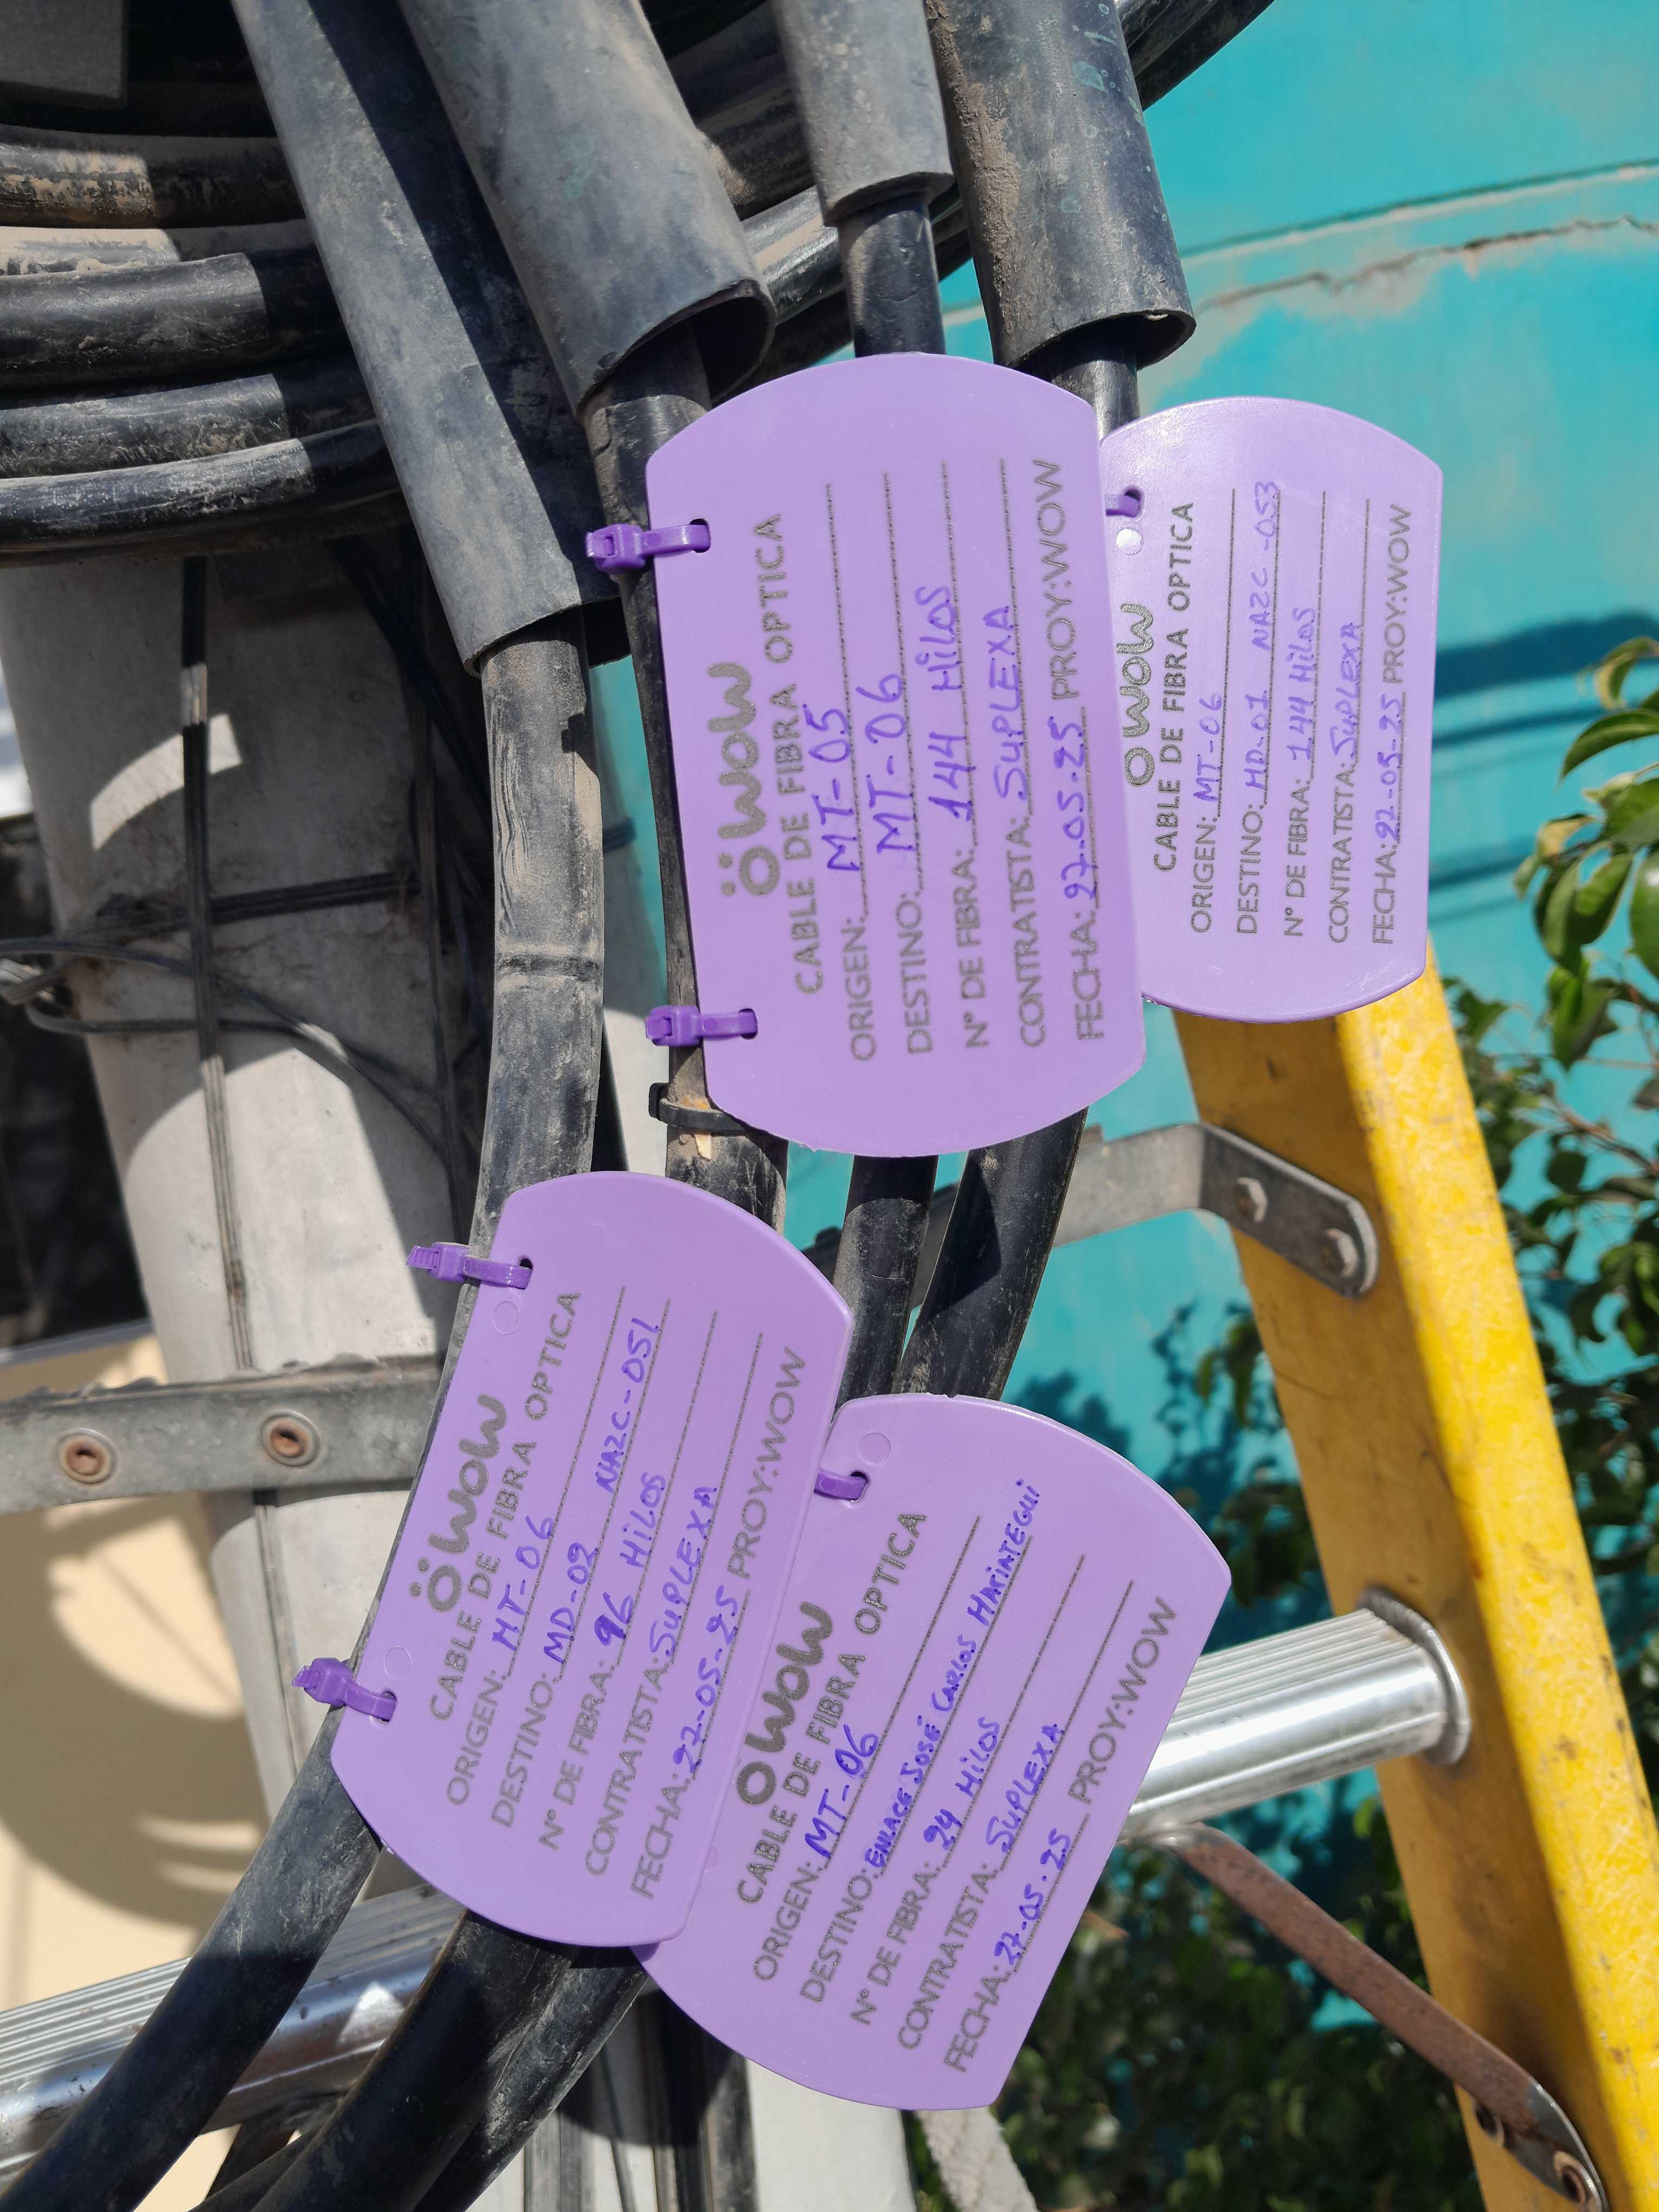 WOW
CABLE DE FIBRA OPTICA
ORIGEN: MT-05
DESTINO: MT-06
N° DE FIBRA: 144 Hilos
CONTRATISTA: SUPLEXA
FECHA: 27-05-25 PROY:WOW
WOW
CABLE DE FIBRA OPTICA
ORIGEN: MT-06
DESTINO: HD-01 NAZC-053
N° DE FIBRA: 144 Hilos
CONTRATISTA: SUPLEXA
FECHA: 27-05-25 PROY:WOW
WOW
CABLE DE FIBRA OPTICA
ORIGEN: MT-06
DESTINO: MD-02 NAZC-051
N° DE FIBRA: 96 Hilos
CONTRATISTA: SUPLEXA
FECHA: 27-05-25 PROY:WOW
WOW
CABLE DE FIBRA OPTICA
ORIGEN: MT-06
DESTINO: ENLACE JOSÉ CARLOS MARIATEGUI
N° DE FIBRA: 24 Hilos
CONTRATISTA: SUPLEXA
FECHA: 27-05-25 PROY:WOW